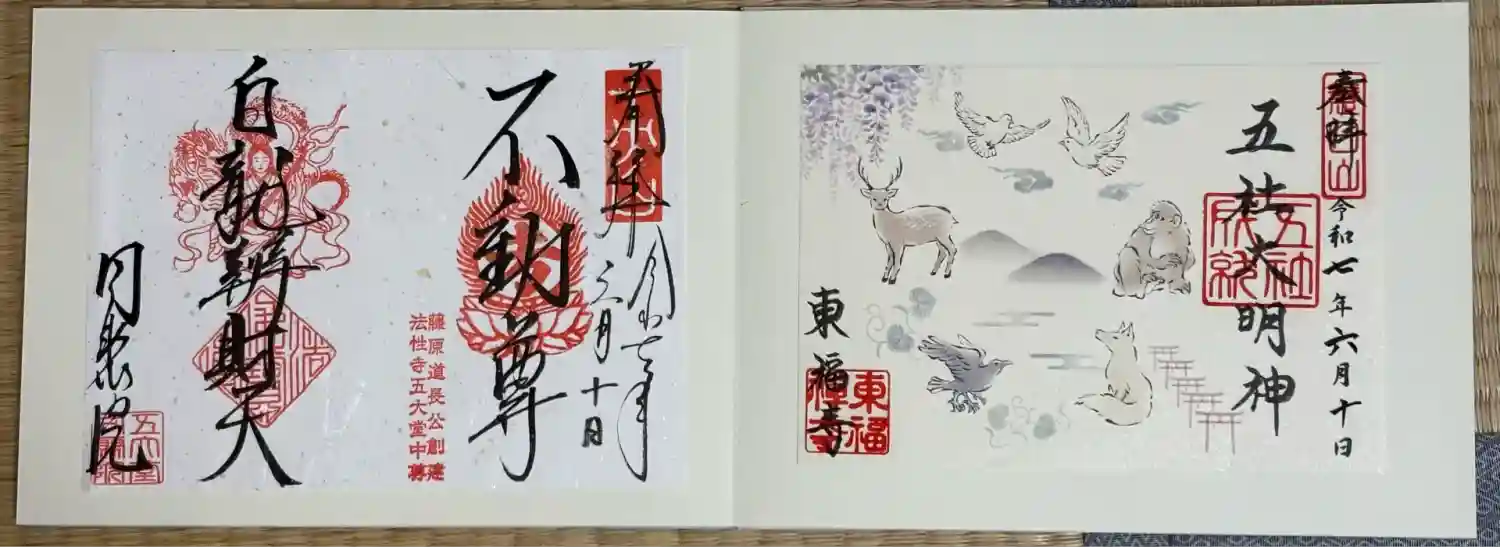 奉拝
令和七年六月十日
五社大明神
五社成就
東福寺
奉拝
令和七年
六月十日
不動尊
藤原道長公創建
法性寺五大堂中尊
白龍辨財天
同聚院